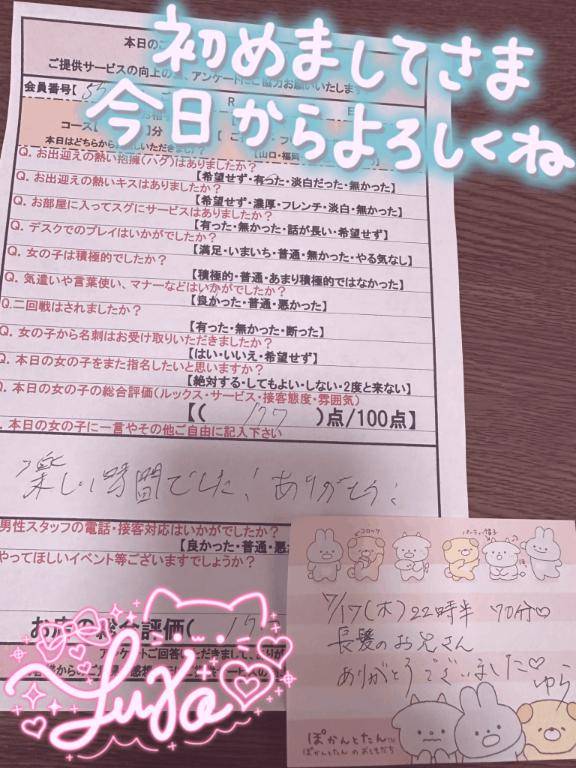 初めましてさま
今日からよろしくね
本日のご
ご提供サービスの向上の為、アンケートにご協力お願いいたします
会員番号【
コース【 】分
本日はどちらから
山口・福岡
Q. お出迎えの熱い抱擁(ハグ)はありましたか?
【希望せず・有った・淡白だった・無かった】
Q. お出迎えの熱いキスはありましたか?
【希望せず・濃厚・フレンチ・淡白・無かった】
Q. お部屋に入ってスグにサービスはありましたか?
【有った・無かった・話が長い・希望せず】
Q. デスクでのプレイはいかがでしたか?
【満足・いまいち・普通・無かった・やる気なし】
Q. 女の子は積極的でしたか?
【積極的・普通・あまり積極的ではなかった】
Q. 気遣いや言葉使い、マナーなどはいかがでしたか?
【良かった・普通・悪かった】
Q.二回戦はされましたか?
【有った・無かった・断った】
Q. 女の子から名刺はお受け取りいただきましたか?
【はい・いいえ・希望せず】
Q. 本日の女の子をまた指名したいと思いますか?
【絶対する・してもよい・しない・2度と来ない】
Q. 本日の女の子の総合評価(ルックス・サービス・接客態度・雰囲気)
【( 177 )点/100点】
. 本日の女の子に一言やその他ご自由に記入下さい
楽しい時間でした! ありがとう!
男性スタッフの電話・接客対応はいかがでしたか?
【良かった・普通・悪か
やってほしいイベント等ございますでしょうか?
お店の総合評価( 17
アンケートご回答
7/17(木) 22時半 70分♡
長髪のお兄さん
ありがとうございました♡
ゆら
ぽかんとたん
ぽかんとたんのおともだち
Yura